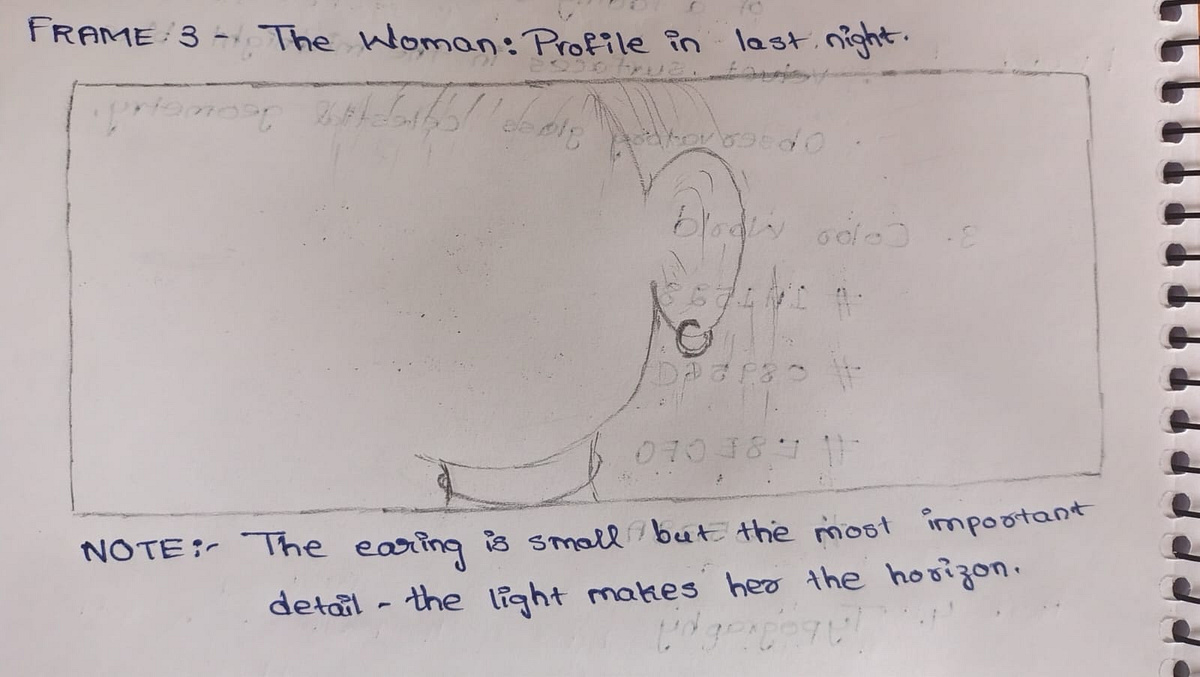 FRAME 3 - The Woman: Profile in last night.
NOTE:- The earing is small but the most important
detail - the light makes her the horizon.